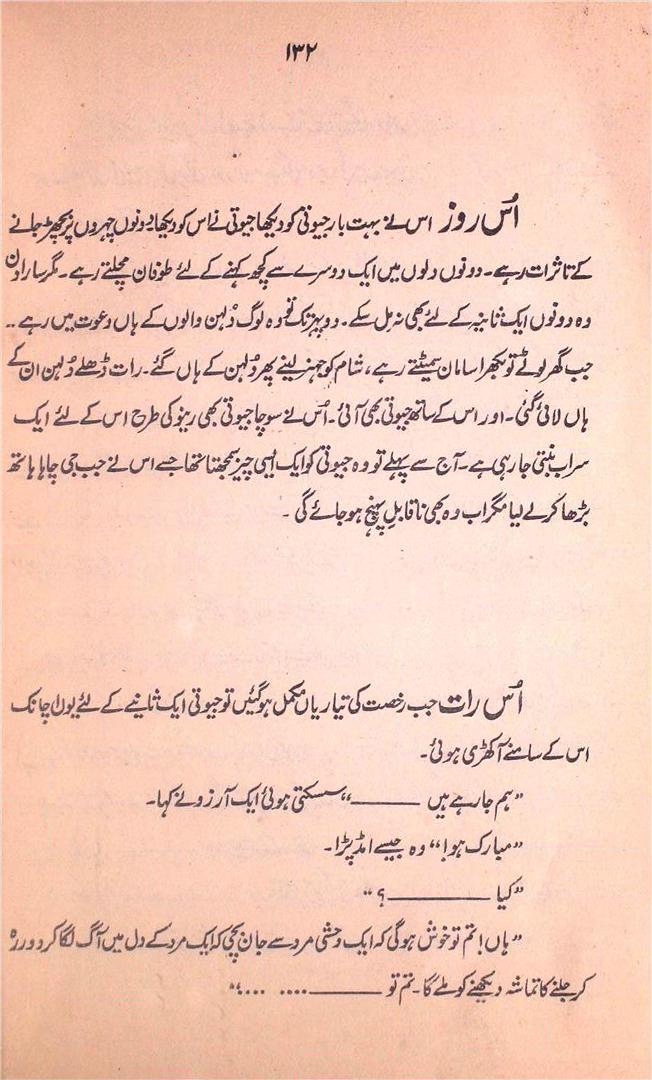 ۱۳۲
اُس روز اس نے بہت بار جیوتی کو دیکھا جیوتی نے اس کو دیکھا دونوں چہروں پر بچھڑ جانے
کے تاثرات رہے۔ دونوں دلوں میں ایک دوسرے سے کچھ کہنے کے لئے طوفان مچلتے رہے۔ مگر سارا دن
وہ دونوں ایک ثانیہ کے لئے بھی نہ مل سکے۔ دوپہر تک تو وہ لوگ دُلہن والوں کے ہاں دعوت میں رہے۔۔
جب گھر لوٹے تو بکھرا سامان سمیٹتے رہے، شام کو جہیز لینے پھر دُلہن کے ہاں گئے۔ رات ڈھلے دُلہن ان کے
ہاں لائی گئی۔ اور اس کے ساتھ جیوتی بھی آئی۔ اُس نے سوچا جیوتی بھی رینو کی طرح اس کے لئے ایک
سراب بنتی جا رہی ہے۔ آج سے پہلے تو وہ جیوتی کو ایک ایسی چیز سمجھتا تھا جسے اس نے جب جی چاہا ہاتھ
بڑھا کر لے لیا مگر اب وہ بھی ناقابلِ پہنچ ہو جائے گی ۔
اُس رات جب رخصت کی تیاریاں مکمل ہو گئیں تو جیوتی ایک ثانیے کے لئے یوں اچانک
اس کے سامنے آ کھڑی ہوئی۔
”ہم جا رہے ہیں ———“ سسکتی ہوئی ایک آرزو نے کہا۔
”مبارک ہو!“ وہ جیسے امڈ پڑا۔
”کیا ———— ؟“
”ہاں! تم تو خوش ہو گی کہ ایک وحشی مرد سے جان بچی کہ ایک مرد کے دل میں آگ لگا کر دور رہ
کر جلنے کا تماشہ دیکھنے کو ملے گا۔ تم تو ——— .... ....“